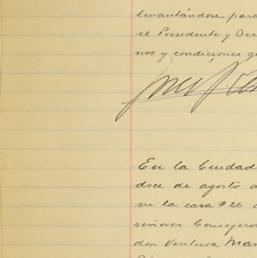 levantándose para
el Presidente y Sec
nos y condiciones qu
En la Ciudad
doce de agosto d
en la casa 726 d
señores Consejero
don Ventura Mar